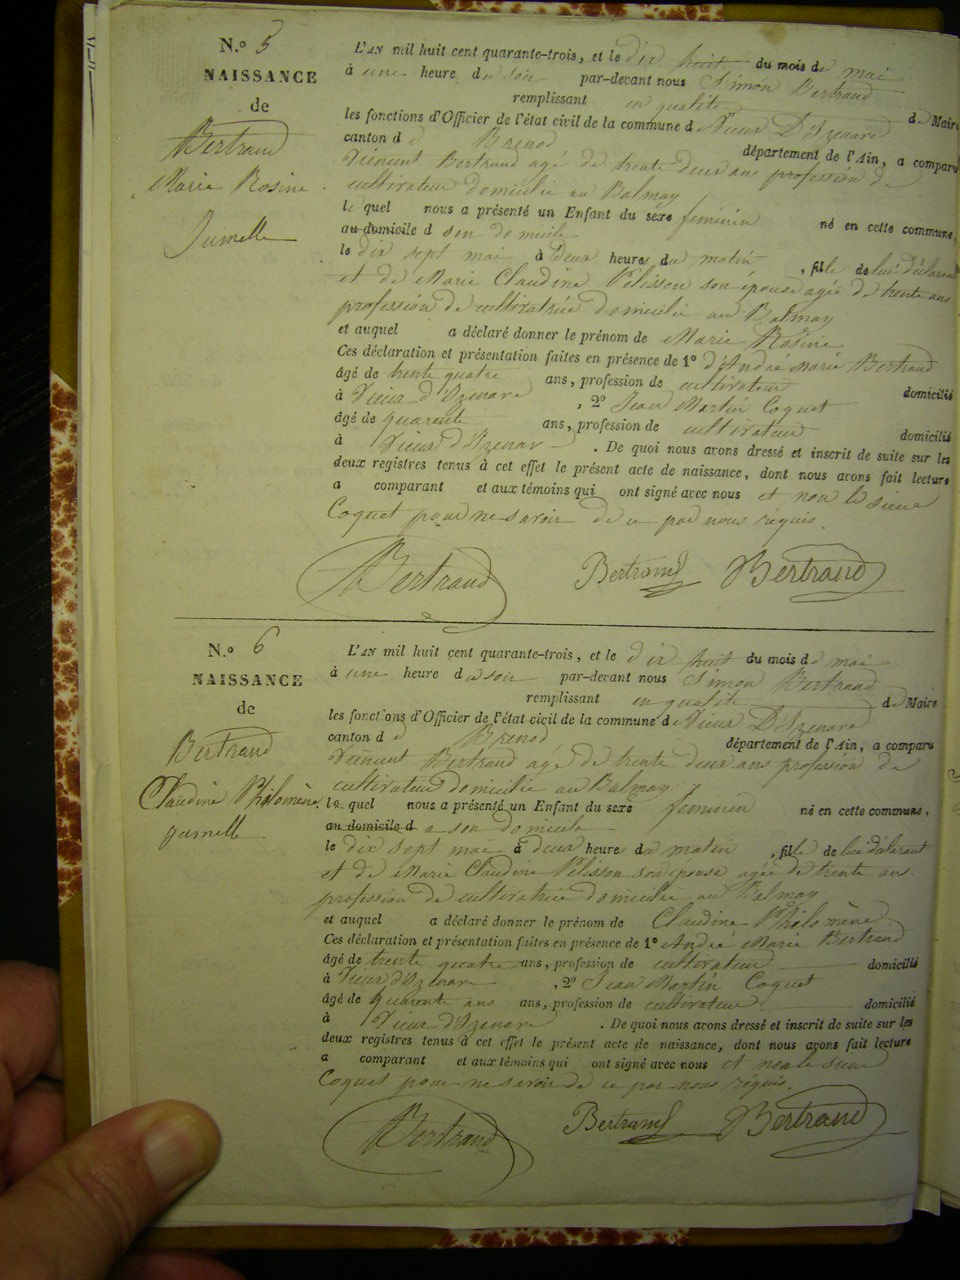 N.º 5
NAISSANCE
de
Bertrand
Marie Rosine
Jumelle
L'AN mil huit cent quarante-trois, et le dix huit du mois de mai
à une heure du soir par-devant nous Simon Bertrand
remplissant en qualité de Maire
les fonctions d'Officier de l'état civil de la commune de Vieux D'Izenave
canton de Brenod département de l'Ain, a comparu
Vincent Bertrand agé de trente deux ans profession de
cultivateur domicilié au Balmay
lequel nous a présenté un Enfant du sexe feminin né en cette commune,
au domicile d son domicile
le dix sept mai à deux heures du matin, fille de lui déclarant
et de Marie Claudine Pélisson son épouse agée de trente ans
profession de cultivatrice domiciliée au Balmay
et auquel a déclaré donner le prénom de Marie Rosine
Ces déclaration et présentation faites en présence de 1º d'André Marie Bertrand
âgé de trente quatre ans, profession de cultivateur domicilié
à Vieux d'Izenave, 2º Jean Martin Coquet
âgé de quarente ans, profession de cultivateur domicilié
à Vieux d'Izenave. De quoi nous avons dressé et inscrit de suite sur les
deux registres tenus à cet effet le présent acte de naissance, dont nous avons fait lecture
a comparant et aux témoins qui ont signé avec nous et non le sieur
Coquet pour ne savoir de ce par nous réquis.
Bertrand Bertrand Bertrand
N.º 6
NAISSANCE
de
Bertrand
Claudine Philomène
jumelle
L'AN mil huit cent quarante-trois, et le dix huit du mois de mai
à une heure du soir par-devant nous Simon Bertrand
remplissant en qualité de Maire
les fonctions d'Officier de l'état civil de la commune de Vieux D'Izenave
canton de Brenod département de l'Ain, a comparu
Vincent Bertrand agé de trente deux ans profession de
cultivateur domicilié au Balmay
lequel nous a présenté un Enfant du sexe feminin né en cette commune,
au domicile d a son domicile
le dix sept mai à deux heures du matin, fille de lui déclarant
et de Marie Claudine Pélisson son épouse agée de trente ans
profession de cultivatrice domiciliée au Balmay
et auquel a déclaré donner le prénom de Claudine Philomène
Ces déclaration et présentation faites en présence de 1º André Marie Bertrand
âgé de trente quatre ans, profession de cultivateur domicilié
à Vieux d'Izenave, 2º Jean Martin Coquet
âgé de quarente ans ans, profession de cultivateur domicilié
à Vieux d'Izenave. De quoi nous avons dressé et inscrit de suite sur les
deux registres tenus à cet effet le présent acte de naissance, dont nous avons fait lecture
a comparant et aux témoins qui ont signé avec nous et non le sieur
Coquet pour ne savoir de ce par nous réquis.
Bertrand Bertrand Bertrand